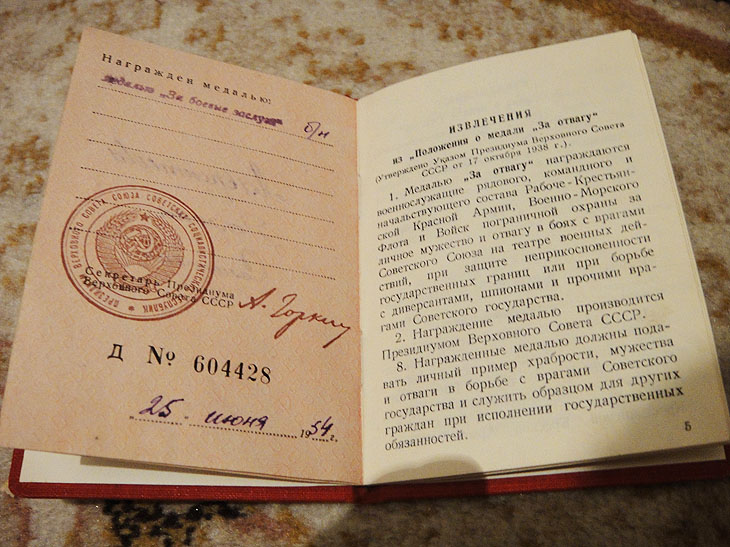 Награжден медалью:
медалью „За боевые заслуги“
б/н
ПРЕЗИДИУМ ВЕРХОВНОГО СОВЕТА СОЮЗА СОВЕТСКИХ СОЦИАЛИСТИЧЕСКИХ РЕСПУБЛИК
Секретарь Президиума
Верховного Совета СССР
А. Горкин
Д № 604428
„25“ июня 1954 г.
ИЗВЛЕЧЕНИЯ
из „Положения о медали „За отвагу“
(Утверждено Указом Президиума Верховного Совета
СССР от 17 октября 1938 г.).
1. Медалью „За отвагу“ награждаются
военнослужащие рядового, командного и
начальствующего состава Рабоче-Крестьян-
ской Красной Армии, Военно-Морского
Флота и Войск пограничной охраны за
личное мужество и отвагу в боях с врагами
Советского Союза на театре военных дей-
ствий, при защите неприкосновенности
государственных границ или при борьбе
с диверсантами, шпионами и прочими вра-
гами Советского государства.
2. Награждение медалью производится
Президиумом Верховного Совета СССР.
8. Награжденные медалью должны пода-
вать личный пример храбрости, мужества
и отваги в борьбе с врагами Советского
государства и служить образцом для других
граждан при исполнении государственных
обязанностей.
5